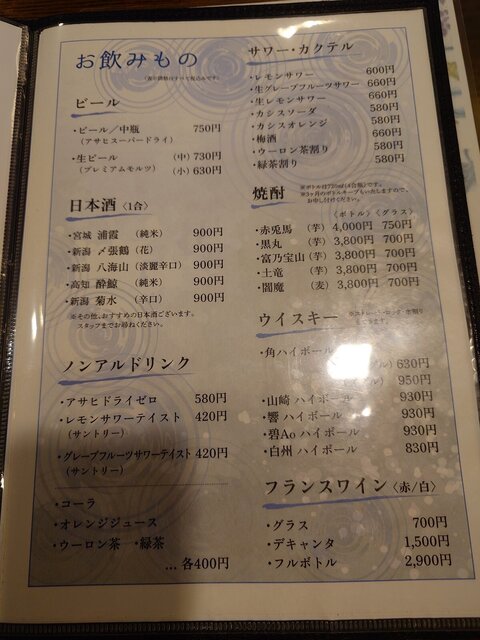 お飲みもの
(表示価格はすべて税込みです。)
ビール
・ビール／中瓶 750円
(アサヒスーパードライ)
・生ビール (中) 730円
(プレミアムモルツ) (小) 630円
日本酒〈1合〉
・宮城 浦霞 (純米) 900円
・新潟 〆張鶴 (花) 900円
・新潟 八海山 (淡麗辛口) 900円
・高知 酔鯨 (純米) 900円
・新潟 菊水 (辛口) 900円
※その他、おすすめの日本酒ございます。
スタッフまでお尋ねください。
ノンアルドリンク
・アサヒドライゼロ 580円
・レモンサワーテイスト 420円
(サントリー)
・グレープフルーツサワーテイスト 420円
(サントリー)
・コーラ
・オレンジジュース
・ウーロン茶 ・緑茶
… 各400円
サワー・カクテル
・レモンサワー 600円
・生グレープフルーツサワー 660円
・生レモンサワー 660円
・カシスソーダ 580円
・カシスオレンジ 580円
・梅酒 660円
・ウーロン茶割り 580円
・緑茶割り 580円
焼酎
※ボトルは720ml(4合瓶)です。
※3ヶ月のボトルキープもいたしますので、
お申し付けください。
〈ボトル〉〈グラス〉
・赤兎馬 (芋) 4,000円 750円
・黒丸 (芋) 3,800円 700円
・富乃宝山 (芋) 3,800円 700円
・土竜 (芋) 3,800円 700円
・閻魔 (麦) 3,800円 700円
ウイスキー
※ストレート・ロック・水割り
・角ハイボール
630円
950円
・山崎 ハイボール 930円
・響 ハイボール 930円
・碧Ao ハイボール 930円
・白州 ハイボール 830円
フランスワイン〈赤/白〉
・グラス 700円
・デキャンタ 1,500円
・フルボトル 2,900円